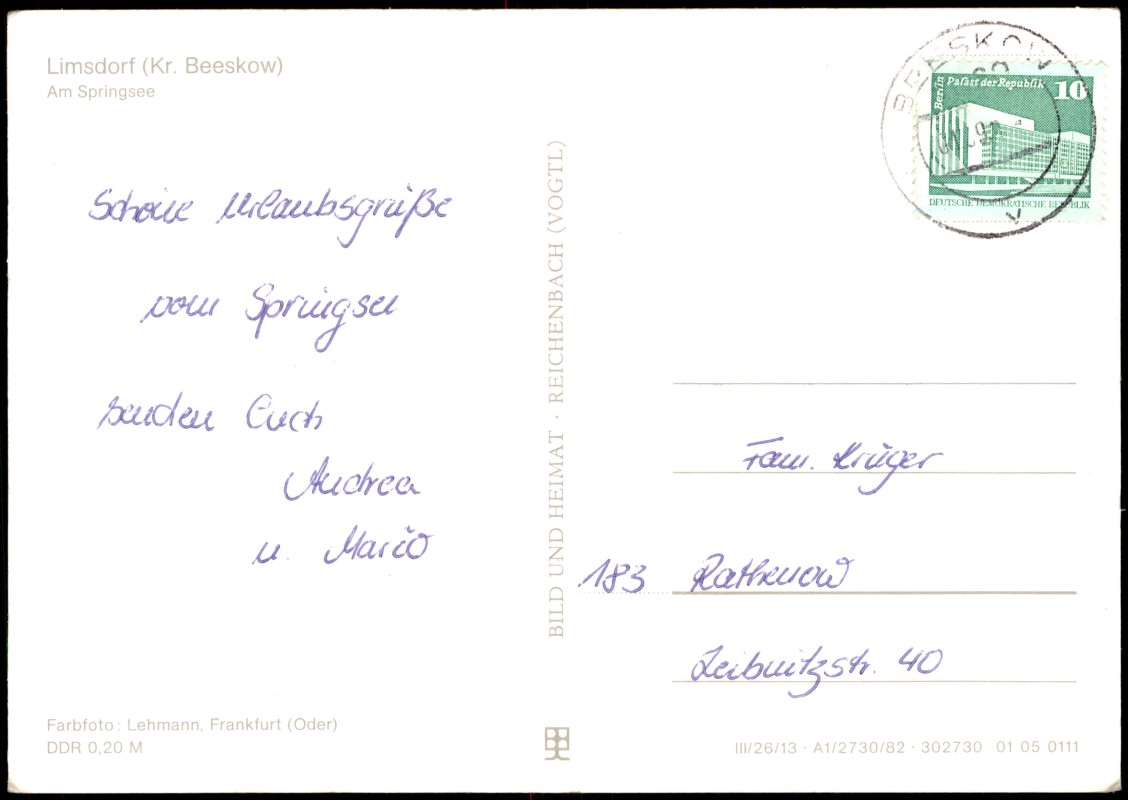 Limsdorf (Kr. Beeskow)
Am Springsee
Schöne Urlaubsgrüße
vom Springsee
senden Euch
Andrea
u. Mario
Farbfoto: Lehmann, Frankfurt (Oder)
DDR 0,20 M
BILD UND HEIMAT · REICHENBACH (VOGTL)
BEESKOW
Berlin Palast der Republik 10
DEUTSCHE DEMOKRATISCHE REPUBLIK
Fam. Krüger
183 Rathenow
Leibnitzstr. 40
III/26/13 · A1/2730/82 · 302730 01 05 0111